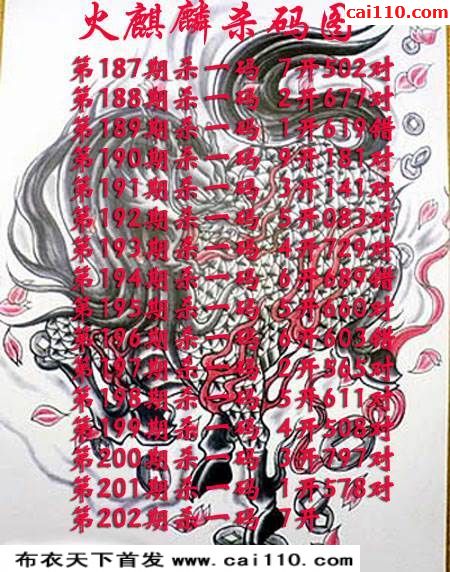 cai110.com
火麒麟杀码图
第187期杀一码 7开502对
第188期杀一码 2开677对
第189期杀一码 1开619错
第190期杀一码 9开181对
第191期杀一码 3开141对
第192期杀一码 5开083对
第193期杀一码 4开729对
第194期杀一码 6开689错
第195期杀一码 5开660对
第196期杀一码 6开603错
第197期杀一码 2开565对
第198期杀一码 5开611对
第199期杀一码 4开508对
第200期杀一码 3开797对
第201期杀一码 1开578对
第202期杀一码 7开
布衣天下首发 www.cai110.com